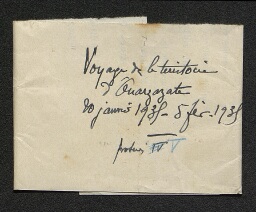 Voyage de le territoire
d'Ouarzazate
20 janvier 1935 - 5 fév. 1935
V